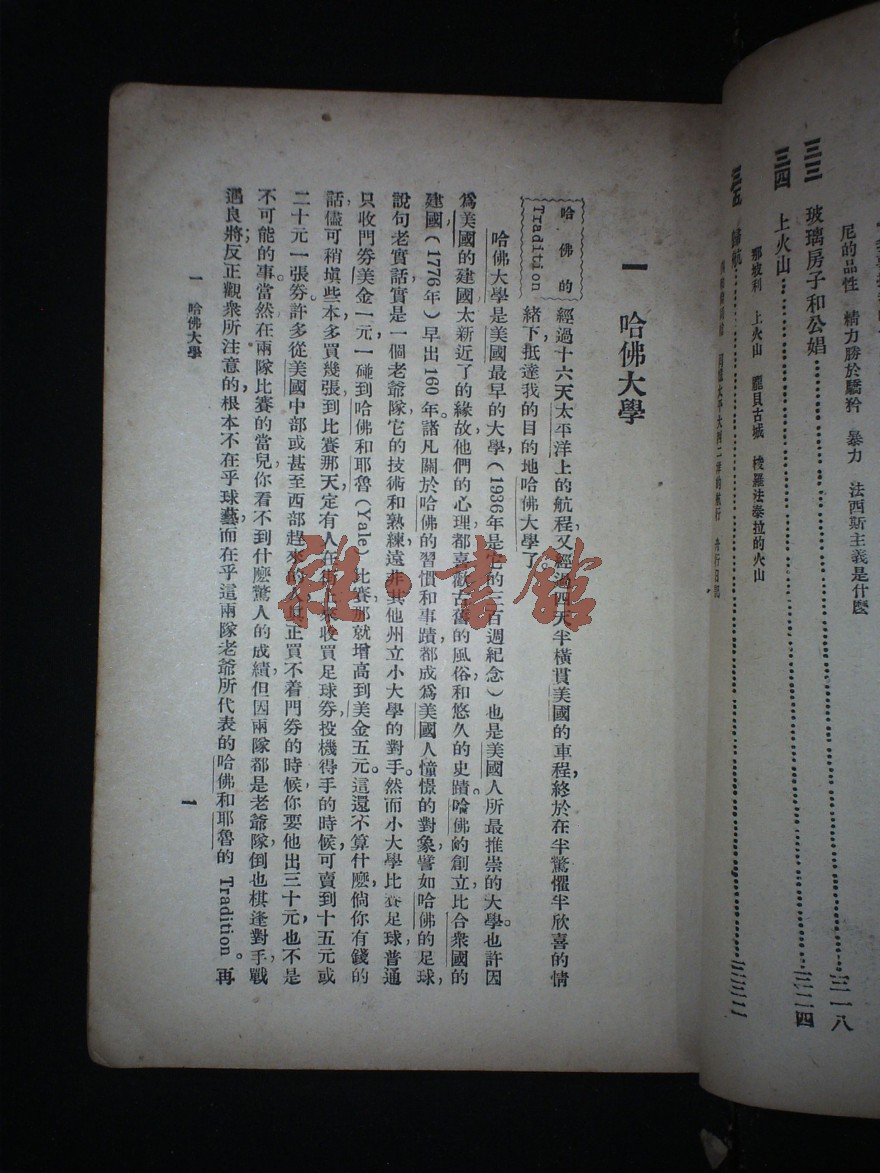 尼的品性　精力勝於驕矜　暴力　法西斯主義是什麼
三三　玻璃房子和公娼……三一八
三四　上火山……三二四
那坡利　上火山　龐貝古城　梭羅法泰拉的火山
三五　歸航……三三二
一　哈佛大學
哈佛的
Tradition
經過十六天太平洋上的航程，又經過四天半橫貫美國的車程，終於在半驚懼半欣喜的情
緒下，抵達我的目的地哈佛大學了。
哈佛大學是美國最早的大學（1936年是它的三百週紀念）也是美國人所最推崇的大學。也許因
爲美國的建國太新近了的緣故，他們的心理都喜歡古舊的風俗和悠久的史蹟。哈佛的創立比合衆國的
建國（1776年）早出160年。諸凡關於哈佛的習慣和事蹟，都成爲美國人憧憬的對象。譬如哈佛的足球，
說句老實話，實是一個老爺隊，它的技術和熟練，遠非其他州立小大學的對手。然而小大學比賽足球，普通
只收門券美金一元，一碰到哈佛和耶魯（Yale）比賽，那就增高到美金五元。這還不算什麼，倘你有錢的
話，儘可稍塡些本，多買幾張，到比賽那天，定有人在街上來收買足球券，投機得手的時候，可賣到十五元或
二十元一張券。許多從美國中部或甚至西部趕來的人，眞正買不着門券的時候，你要他出三十元，也不是
不可能的事。當然，在兩隊比賽的當兒，你看不到什麼驚人的成績，但因兩隊都是老爺隊，倒也棋逢對手，戰
遇良將；反正觀衆所注意的，根本不在乎球藝，而在乎這兩隊老爺所代表的哈佛和耶魯的Tradition。再
一　哈佛大學
1
雜·書館